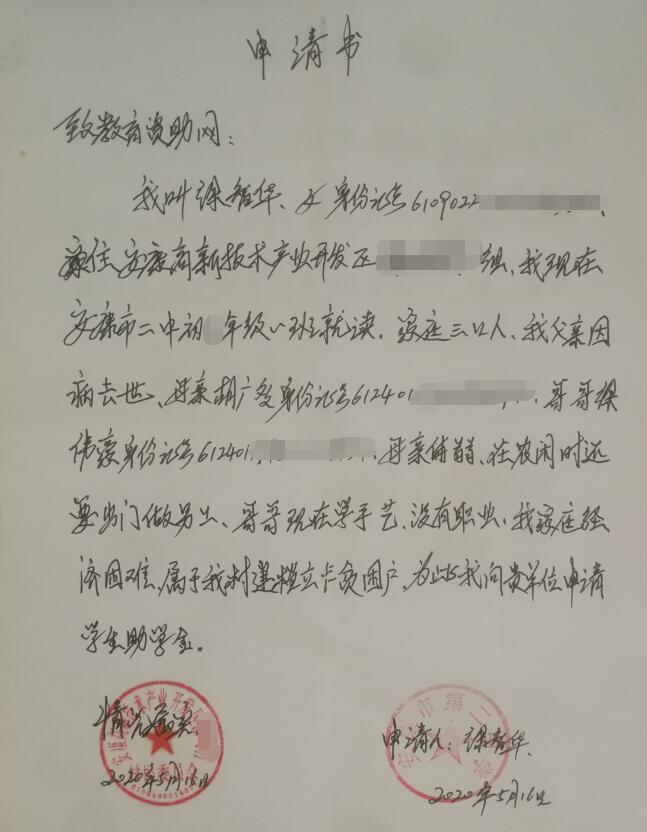 申请书
致教育资助网：
我叫徐智华、女 身份证号6109022
家住安康高新技术产业开发区 组、我现在
安康市二中初 年级八班就读．家庭三口人、我父亲因
病去世、母亲胡广 身份证号612401 ．哥哥徐
伟豪身份证号612401 ．母亲 ．在农闲时还
要出门做 工、哥哥现在学手艺、没有职业、我家庭经
济困难、属于我村建档立卡贫困户，为此我向贵单位申请
学生助学金。
情况属实
2020年5月16日
申请人：徐智华
2020年5月16日
安康 技术产业开发
村民委员会
安 市第二 学